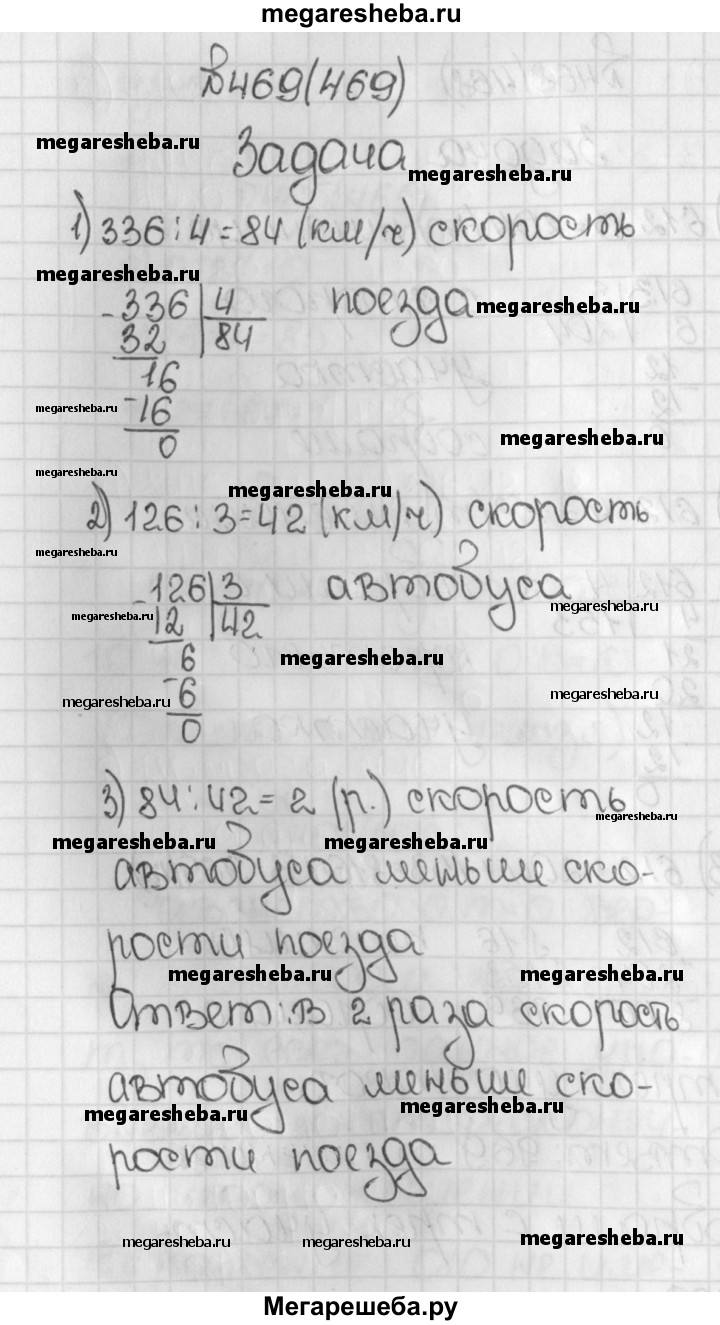 megaresheba.ru
№469(469)
megaresheba.ru
Задача
megaresheba.ru
1) 336:4=84 (км/ч) скорость
megaresheba.ru
поезда
megaresheba.ru
-336 4
32 84
16
megaresheba.ru
-16
0
megaresheba.ru
megaresheba.ru
megaresheba.ru
2) 126:3=42 (км/ч) скорость
megaresheba.ru
автобуса
-126 3
megaresheba.ru
megaresheba.ru
12 42
6
megaresheba.ru
megaresheba.ru
megaresheba.ru
-6
0
3) 84:42=2 (р.) скорость
megaresheba.ru
megaresheba.ru
megaresheba.ru
автобуса меньше ско-
рости поезда
megaresheba.ru
megaresheba.ru
Ответ: в 2 раза скорость
автобуса меньше ско-
megaresheba.ru
megaresheba.ru
рости поезда
megaresheba.ru
megaresheba.ru
megaresheba.ru
Мегарешеба.ру